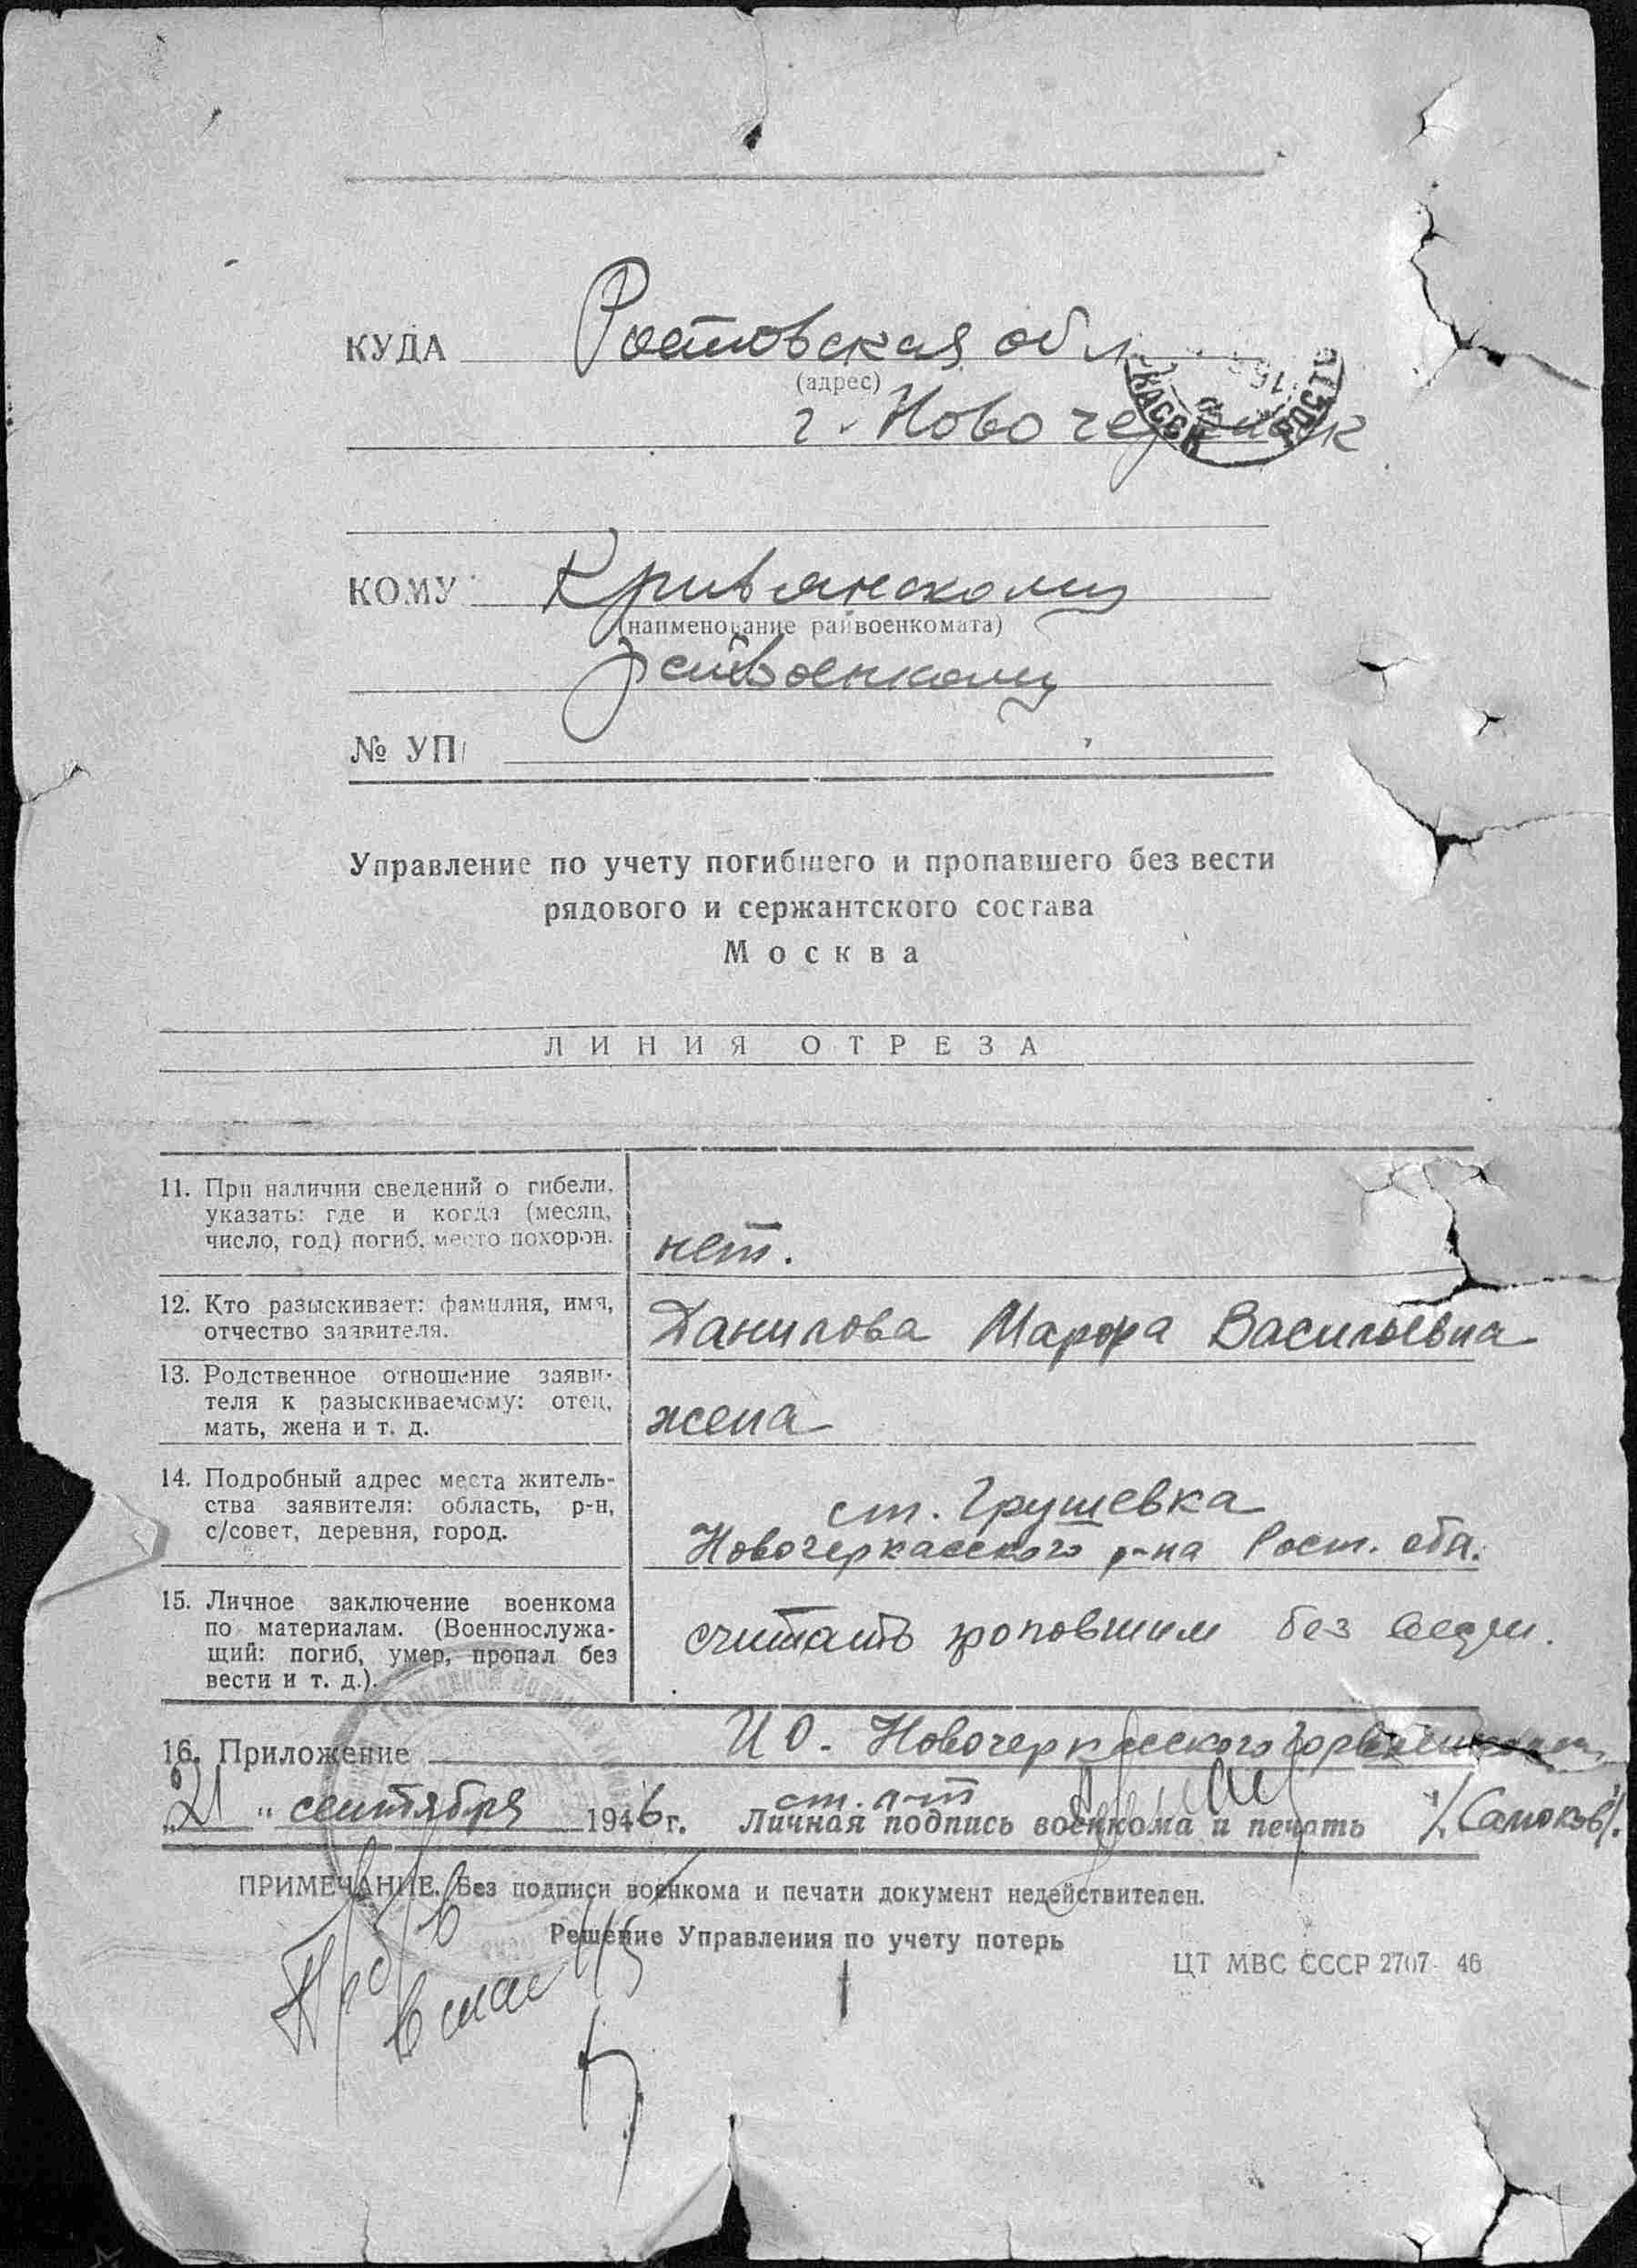 КУДА Ростовская обл
(адрес)
г. Новочеркасск
КАССК РОСТ
КОМУ Кривянскому
(наименование райвоенкомата)
райвоенкому
№ УП
Управление по учету погибшего и пропавшего без вести
рядового и сержантского состава
Москва
ЛИНИЯ ОТРЕЗА
11. При наличии сведений о гибели,
указать: где и когда (месяц,
число, год) погиб, место похорон.
нет.
12. Кто разыскивает: фамилия, имя,
отчество заявителя.
Данилова Марфа Васильевна
13. Родственное отношение заяви-
теля к разыскиваемому: отец,
мать, жена и т. д.
жена
14. Подробный адрес места житель-
ства заявителя: область, р-н,
с/совет, деревня, город.
ст. Грушевка
Новочеркасского р-на Рост. обл.
15. Личное заключение военкома
по материалам. (Военнослужа-
щий: погиб, умер, пропал без
вести и т. д.).
считать проповшим без вести.
16. Приложение
ИО. Новочеркасского горвоенкома
ст. л-т
"21" сентября 1946 г. Личная подпись военкома и печать /Самоков/.
ПРИМЕЧАНИЕ. Без подписи военкома и печати документ недействителен.
Решение Управления по учету потерь
ЦТ МВС СССР 2707- 46
Пр б/в